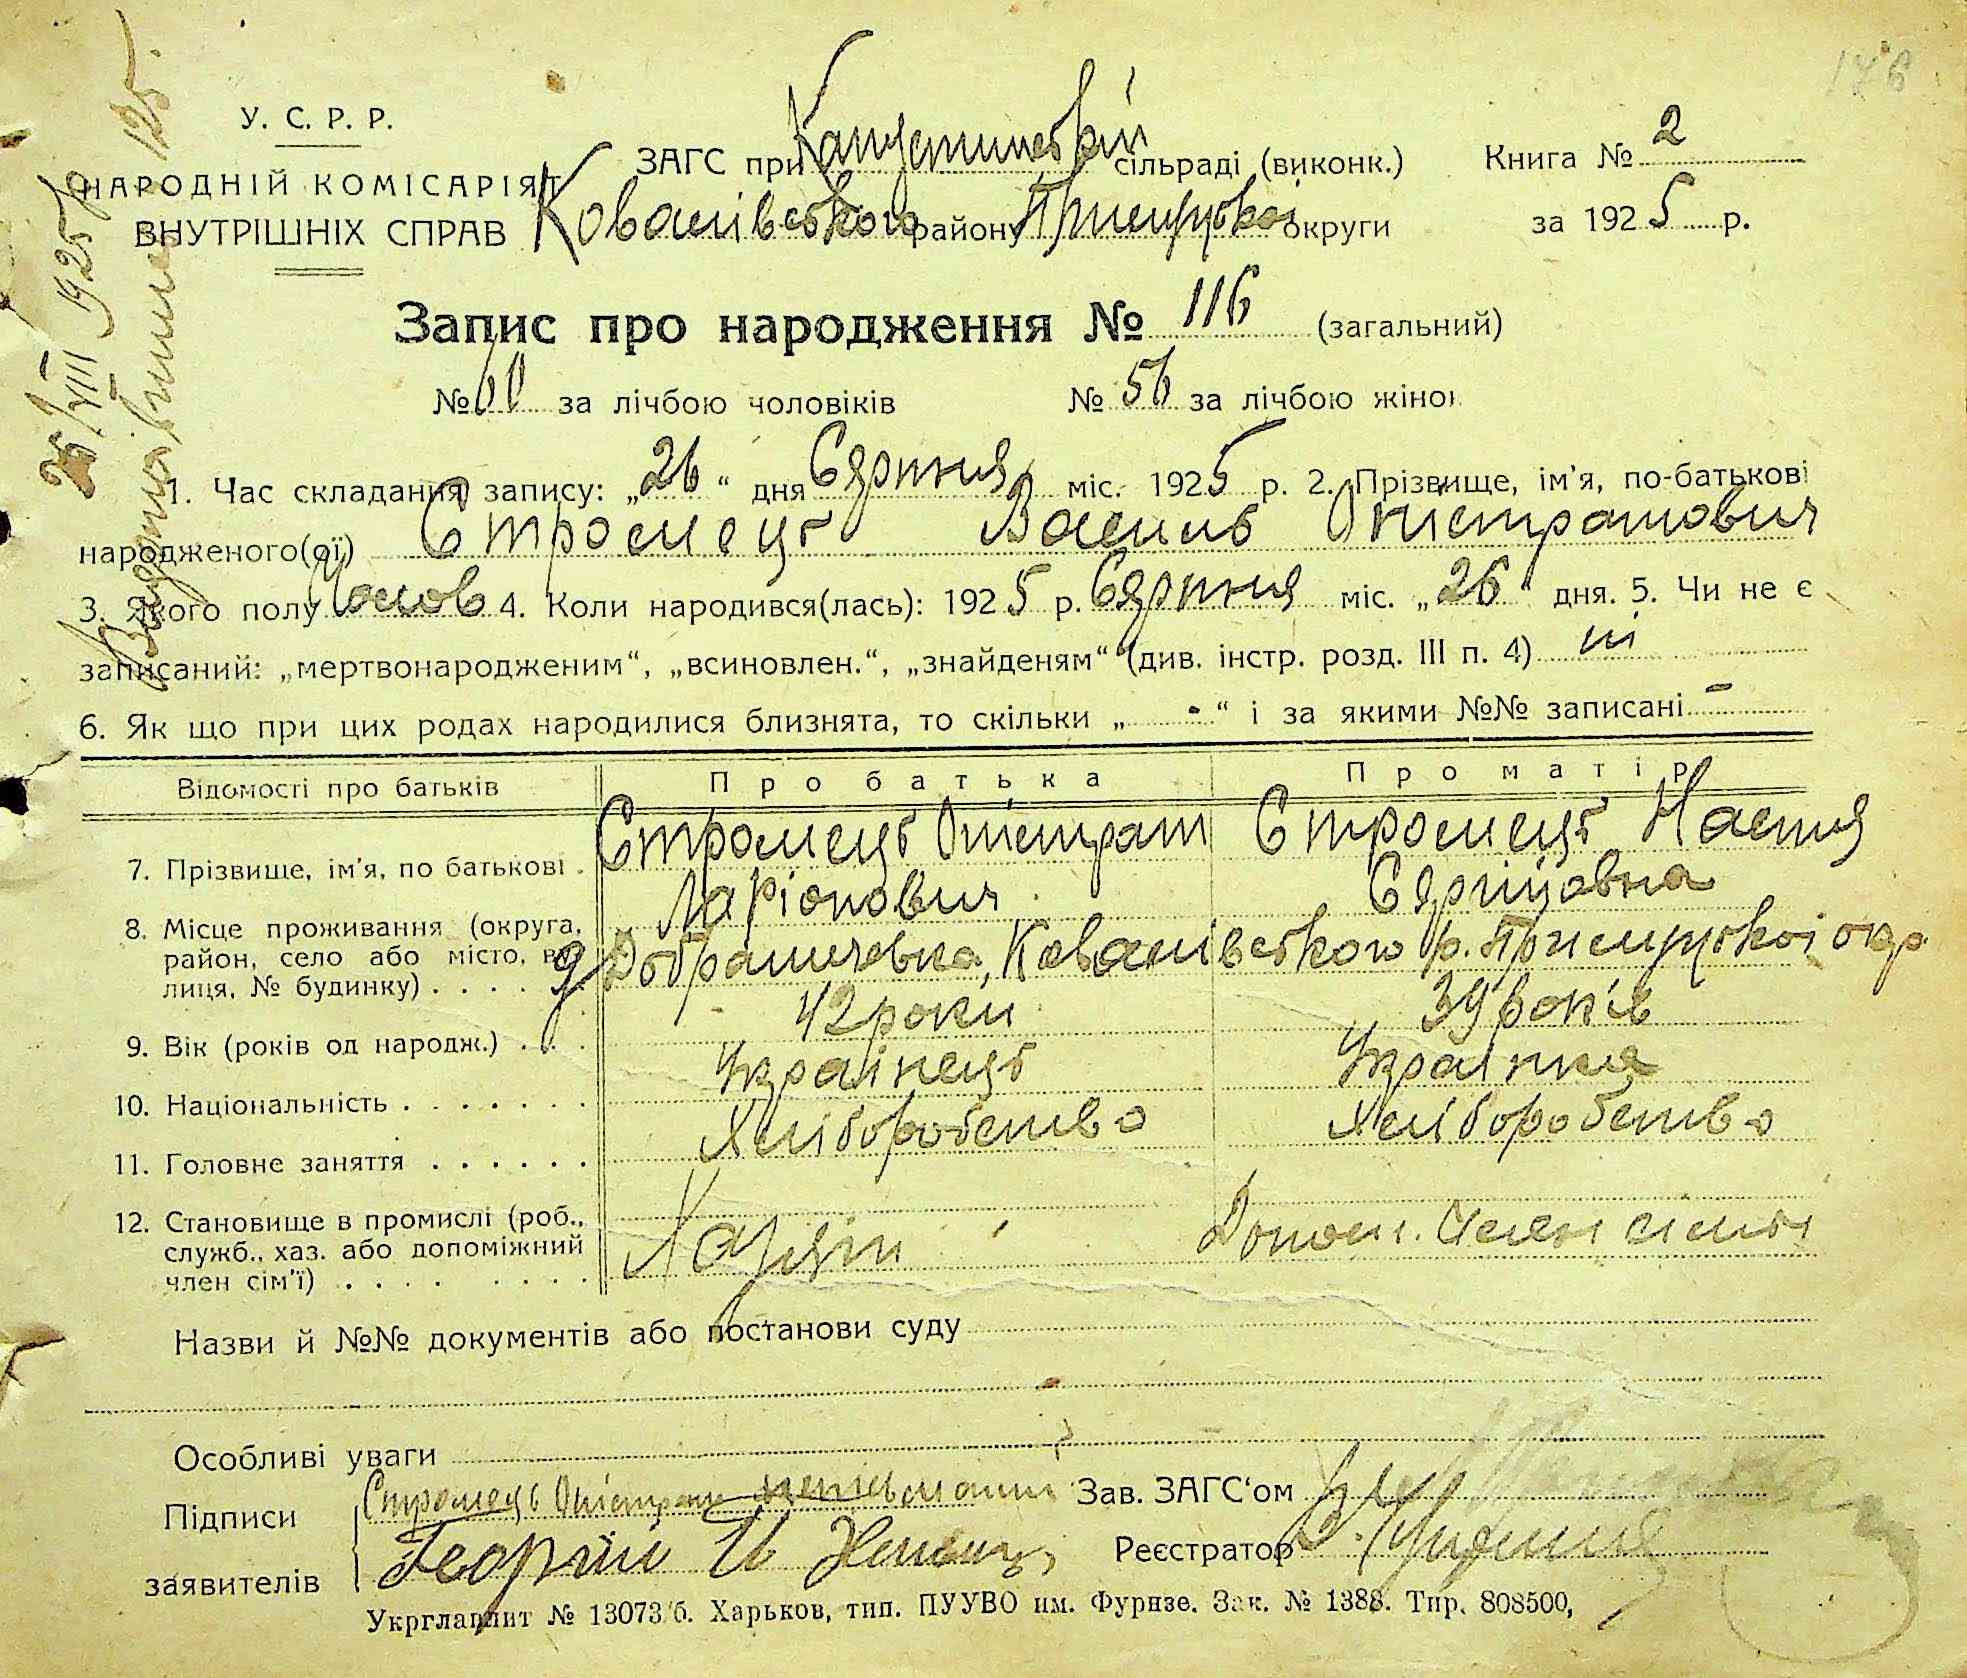 176
У. С. Р. Р.
НАРОДНІЙ КОМІСАРІЯТ
ВНУТРІШНІХ СПРАВ
ЗАГС при Капустинській сільраді (виконк.)
Ковалівського району Прилуцької округи
Книга № 2
за 1925 р.
Запис про народження № 116 (загальний)
№ 60 за лічбою чоловіків № 56 за лічбою жіно
1. Час складання запису: „26“ дня Серпня міс. 1925 р. 2. Прізвище, ім'я, по-батькові
народженого(ої) Стромець Василь Опістратович
3. Якого полу Чолов 4. Коли народився(лась): 1925 р. Серпня міс. „26“ дня. 5. Чи не є
записаний: „мертвонародженим“, „всиновлен.“, „знайденям“ (див. інстр. розд. III п. 4) ні
6. Як що при цих родах народилися близнята, то скільки „ - “ і за якими №№ записані -
Відомості про батьків Про батька Про матір
7. Прізвище, ім'я, по батькові . Стромець Опістрат Ларіонович Стромець Настя Сергіовна
8. Місце проживання (округа,
район, село або місто, ву-
лиця, № будинку) . . . . Ковалівського р. Прилуцької окр
9. Вік (років од народж.) . . . 42 роки 39 років
10. Національність . . . . . . . Українець Українка
11. Головне заняття . . . . . . Хліборобство Хліборобство
12. Становище в промислі (роб.,
служб., хаз. або допоміжний
член сім'ї) . . . . . . . . Хазяїн Допом. член сімьи
Назви й №№ документів або постанови суду
Особливі уваги
Підписи
заявителів
Стромець Опістрат
Георгій
Зав. ЗАГС'ом
Реєстратор
Укрглавлит № 13073/б. Харьков, тип. ПУУВО им. Фрунзе. Зак. № 1388. Тир. 808500,